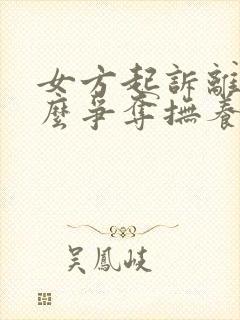 女方起訴離
麼爭奪撫養
吳鳳岐